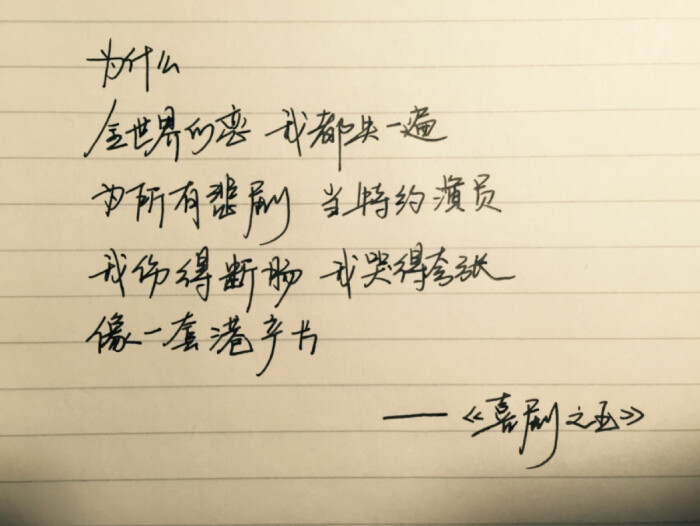 为什么
全世界的恋 我都失一遍
为所有悲剧 当特约演员
我伤得断肠 我哭得夸张
像一套港产片
——《喜剧之王》